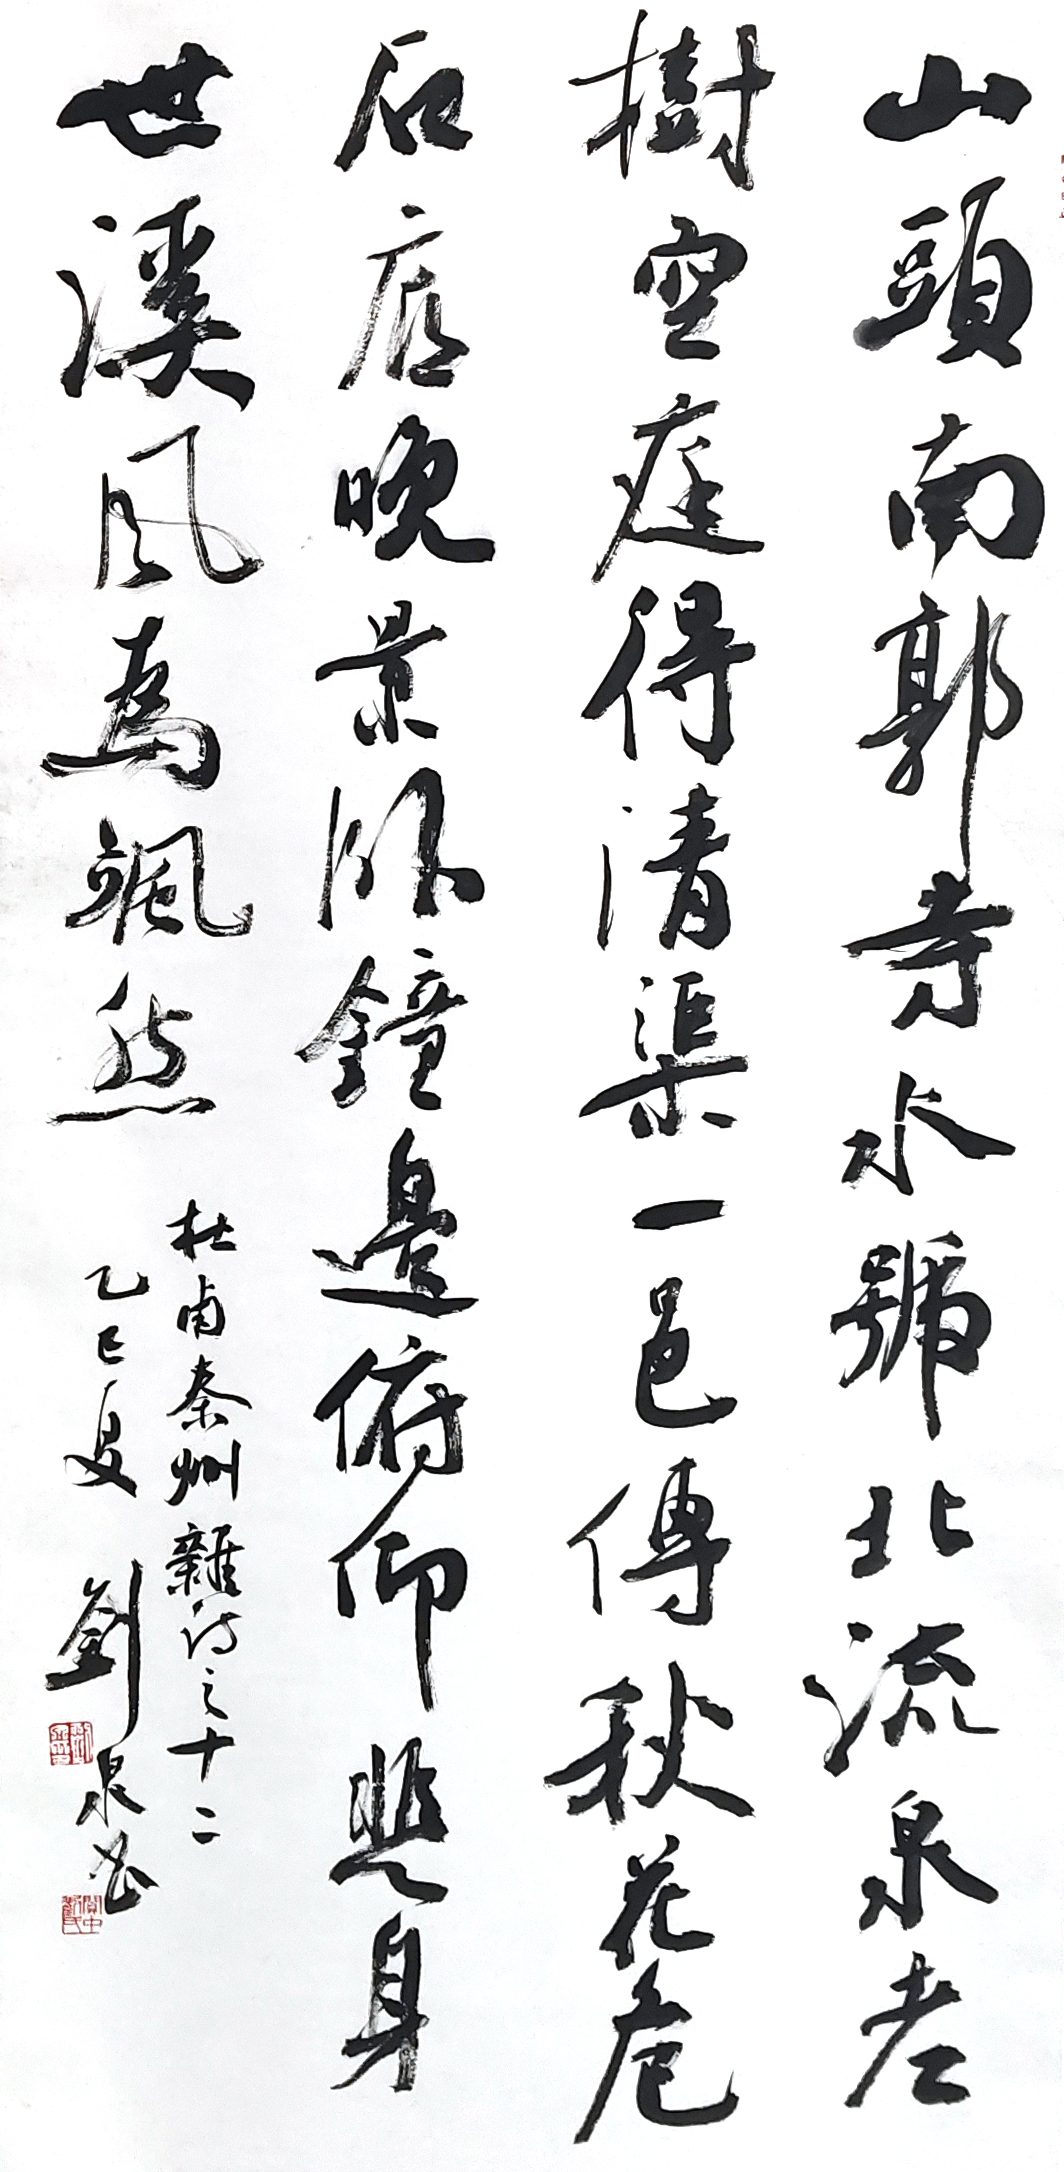 山頭南郭寺水號北流泉老
樹空庭得清渠一邑傳秋花危
石底晚景臥鐘邊俯仰悲身
世溪風為颯然
杜甫秦州雜詩之十二
乙巳夏 劉泉書